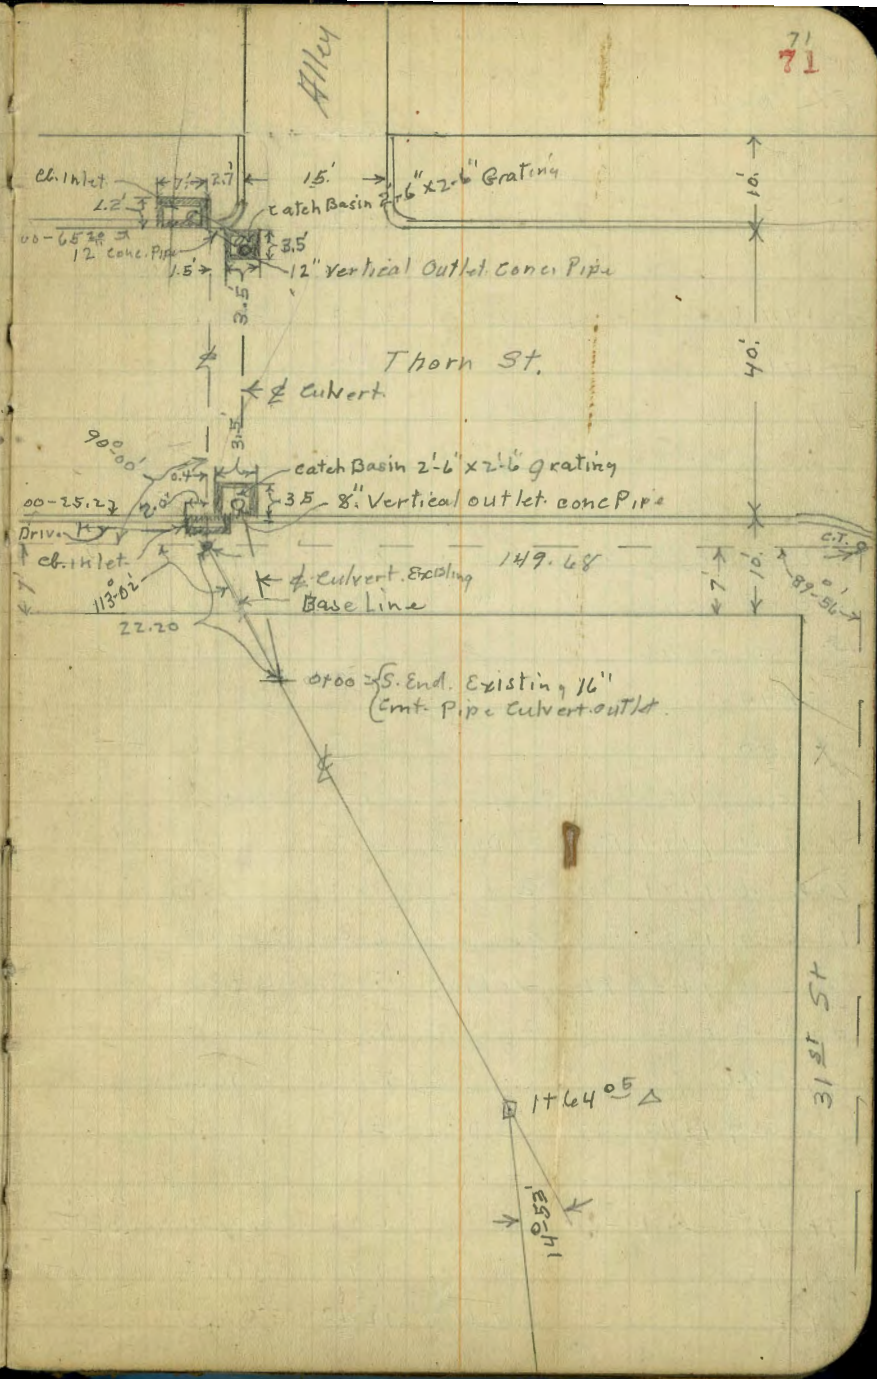 71
71
Alley
Cb. Inlet
7'
2.7'
15'
Catch Basin 2'-6" x 2'-6" Grating
10'
2.2'
00-65
12" Conc. Pipe
3.5'
1.5'
12" Vertical Outlet Conc. Pipe
3.5'
Thorn St.
40'
℄ Culvert
3.5'
90°-00'
0.4'
Catch Basin 2'-6" x 2'-6" Grating
00-25.27
2.0'
3.5
8" Vertical outlet conc Pipe
Drive
C.T.
Cb. inlet
149.68
7'
10'
89°-56'
7'
113°-02'
℄ Culvert Existing
Base Line
22.20
0+00 = S. End. Existing 16"
Cmt. Pipe Culvert. outlet.
℄
31st St
1+64.05 △
14°-53'